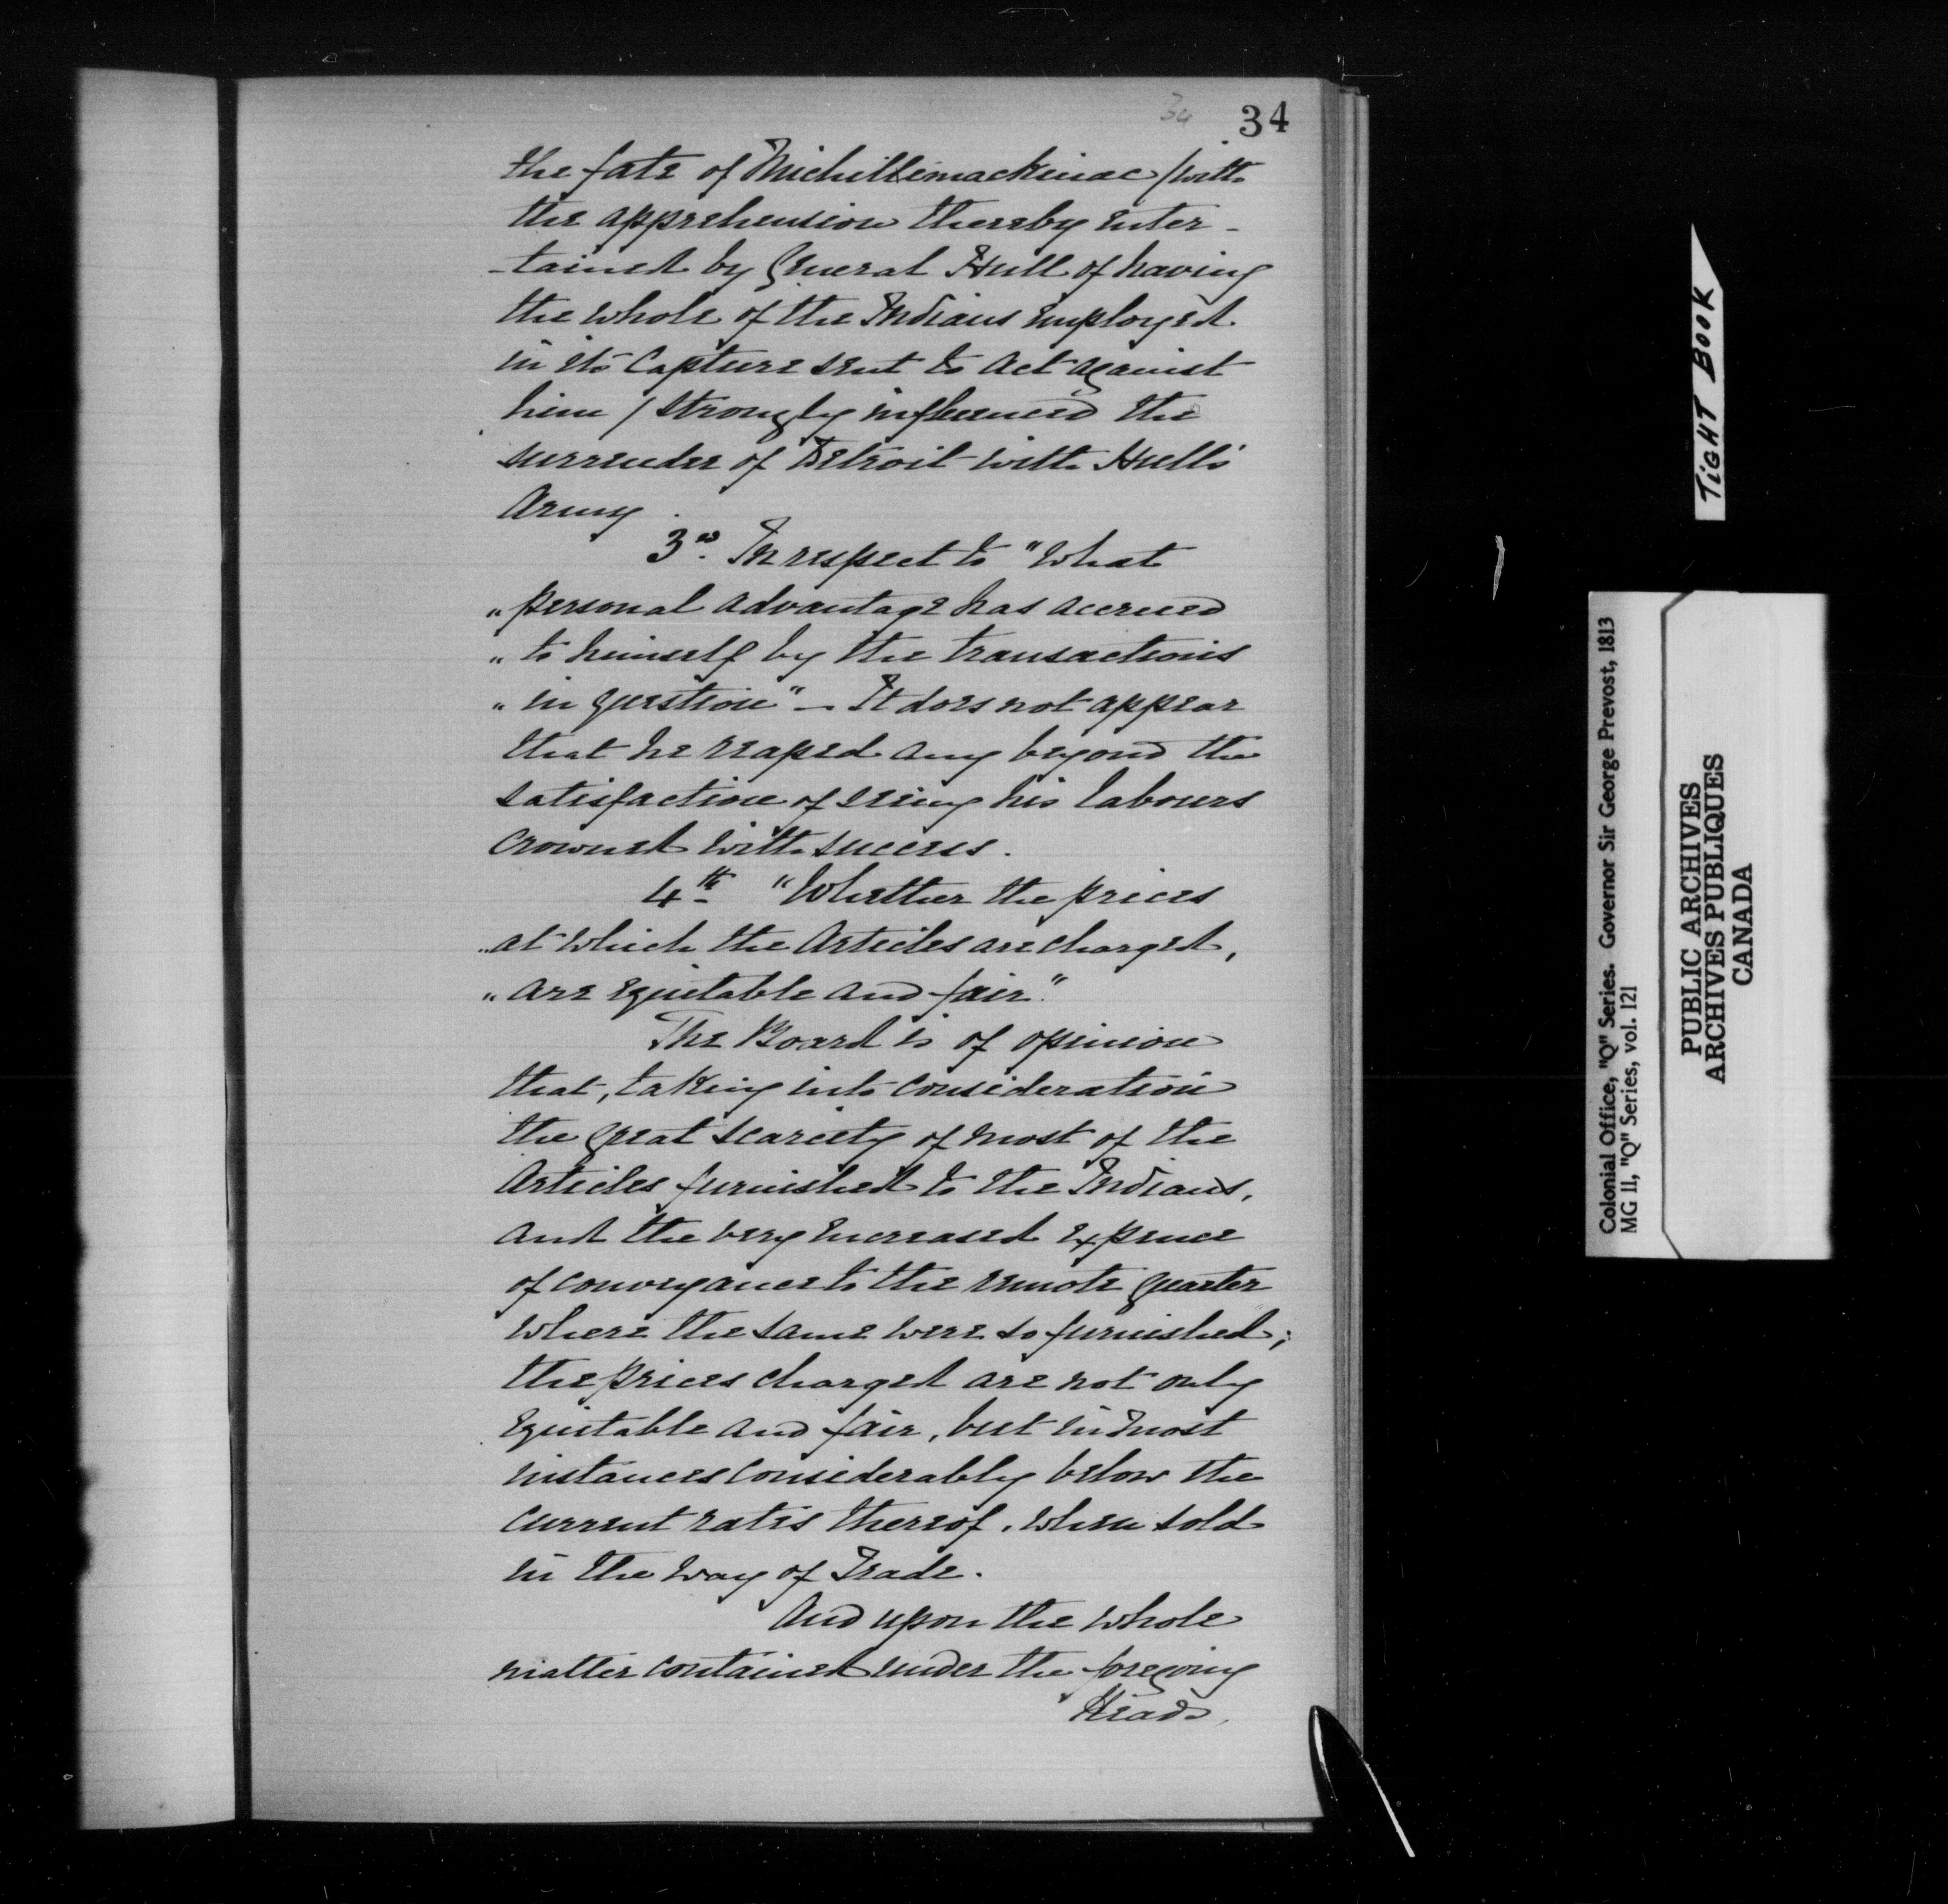 34
34
the fate of Michillimackinac /with
the apprehension thereby enter-
-tained by General Hull of having
the whole of the Indians employed
in its Capture sent to act against
him / strongly influenced the
surrender of Detroit with Hull's
Army.
3d. In respect to "What
"personal advantage has accrued
"to himself by the transactions
"in question" - It does not appear
that he reaped any beyond the
satisfaction of seeing his labours
crowned with success.
4th "Whether the prices
"at which the Articles are charged,
"are equitable and fair."
The Board is of opinion
that, taking into consideration
the great scarcity of most of the
Articles furnished to the Indians,
and the very increased expence
of conveyance to the remote quarter
where the same were so furnished;
the prices charged are not only
equitable and fair, but in most
instances considerably below the
current rates thereof, when sold
in the way of Trade.
And upon the whole
matter contained under the foregoing
Heads,
TIGHT BOOK
Colonial Office, "Q" Series. Governor Sir George Prevost, 1813
MG 11, "Q" Series, vol. 121
PUBLIC ARCHIVES
ARCHIVES PUBLIQUES
CANADA